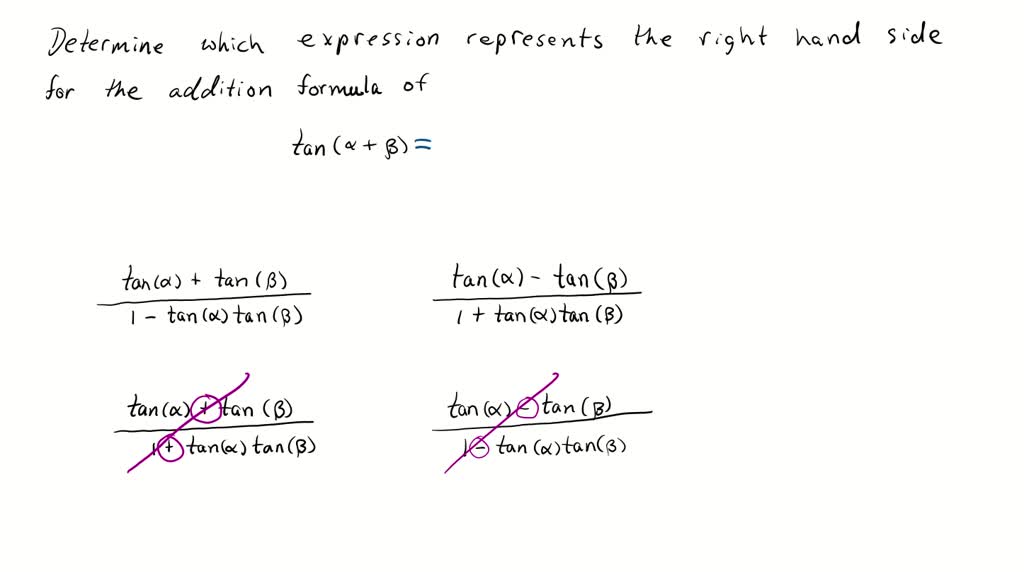 Determine which expression represents the right hand side
for the addition formula of
tan(α + β) =
tan(α) + tan(β)
1 - tan(α) tan(β)
tan(α) - tan(β)
1 + tan(α) tan(β)
tan(α) + tan(β)
1 + tan(α) tan(β)
tan(α) - tan(β)
1 - tan(α) tan(β)